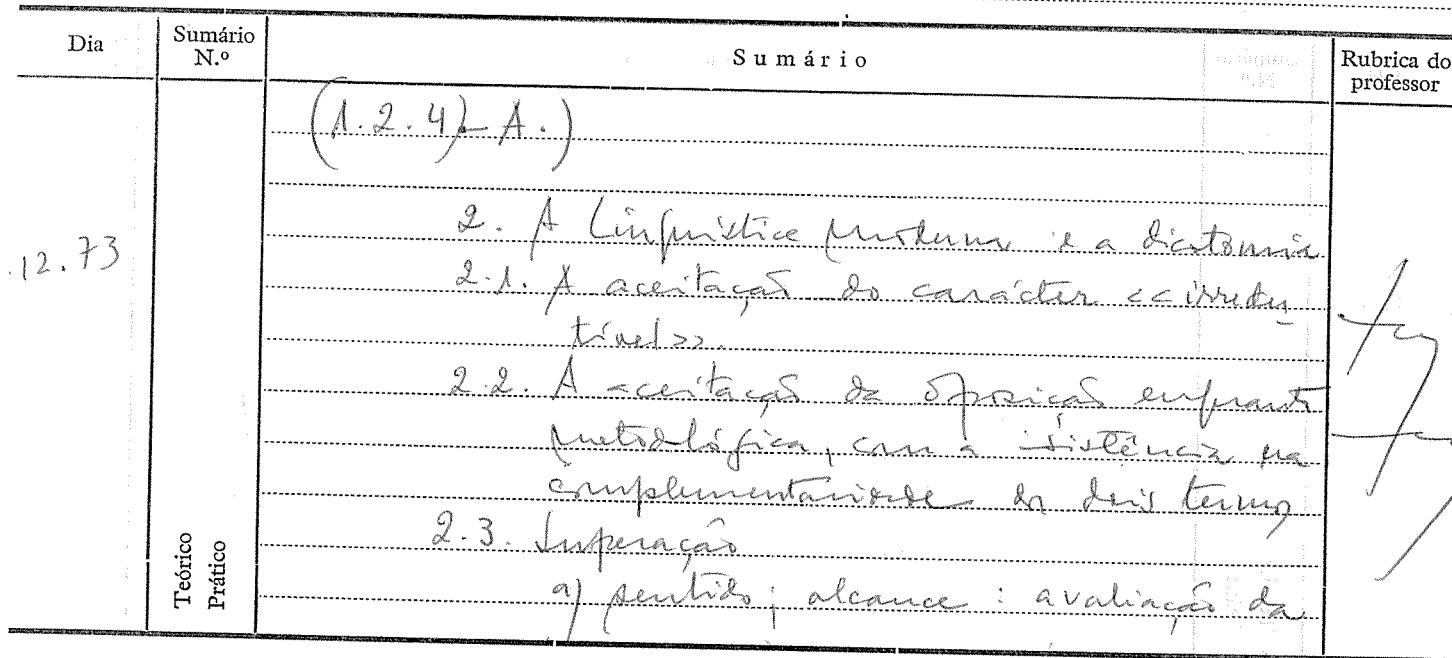 Dia
Sumário N.º
Sumário
Rubrica do professor
(1.2.4)-A.)
.12.73
2. A Linguística Moderna e a dicotomia
2.1. A aceitação do carácter <<irredu_
tível>>.
2.2. A aceitação da oposição enquanto
metodológica, com a insistência na
complementaridade dos dois termos
2.3. Superação
a) sentido; alcance: avaliação da
Teórico
Prático